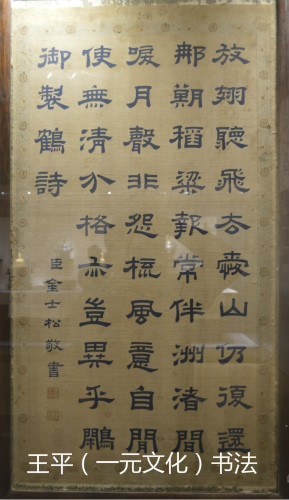 放聽飛去山仍復還
那稻粱報常伴洲渚間
唳月聲非怨梳風意自閒
使無清介格亦豈異乎鷳
御製鶴詩
臣金士松敬書
王平（一元文化）书法